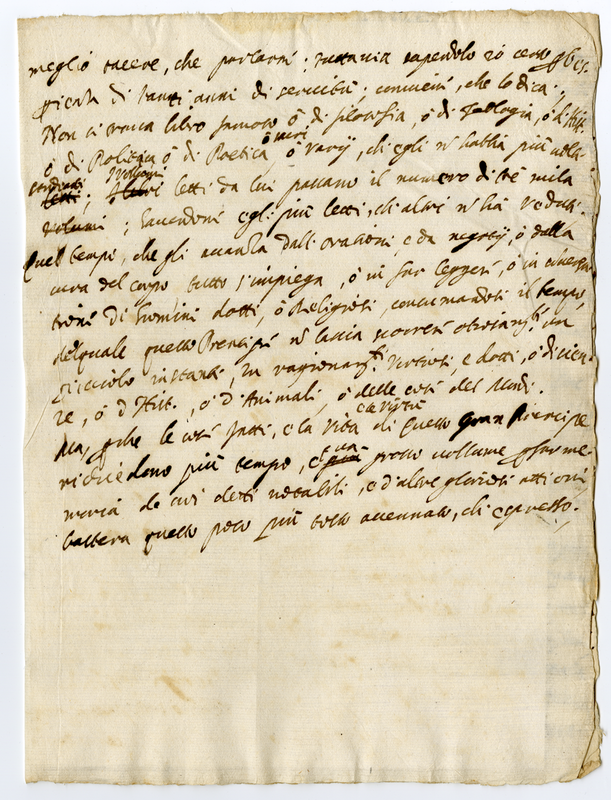 meglio tacere, che parlarne; tuttavia sapendolo io certo
di tanti anni di servitù; conviene, che lo dica.
Non si trova libro famoso ò di filosofia, ò di Teologia, ò d'Hist.
ò di Politica ò di Poetica ò varij, ch'egli nò habbia più volte
letti; letti da lui passano il numero di tre mila
volumi; havendone egli più letti, ch'altri nò hà veduti.
Quel tempo, che gli avanza dall'orationi, e da negotij, ò dalla
cura del corpo tutto l'impiega, ò in far leggere, ò in
di huomini dotti, ò Religiosi, consumandosi il tempo,
del quale questo Prencipe nò lascia scorrere un
picciolo instante, in virtuosi, e dotti, ò di scien-
ze, ò d'Hist. ò d'Animali, ò delle cose del Mondo.
Ma, pche le cose fatte, e la vita e virtù di questo gran Prencipe
richiedono più tempo, et un grosso vollume p far me-
moria de suoi detti notabili, e d'altre gloriose attioni
bastera questo poco più tosto accennato, ch'espresso.